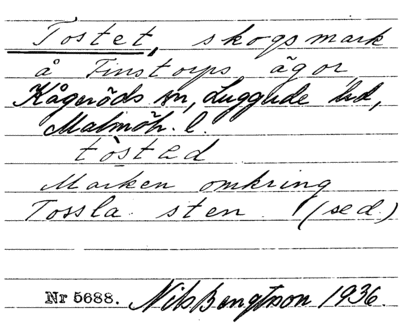 Tostet, skogsmark
å Finstorps ägor,
Kågeröds sn, Luggude hd,
Malmöh. l.
tòsted
Marken omkring
Tossla sten (se d.)
Nr 5688. Nils Bengtsson 1936.